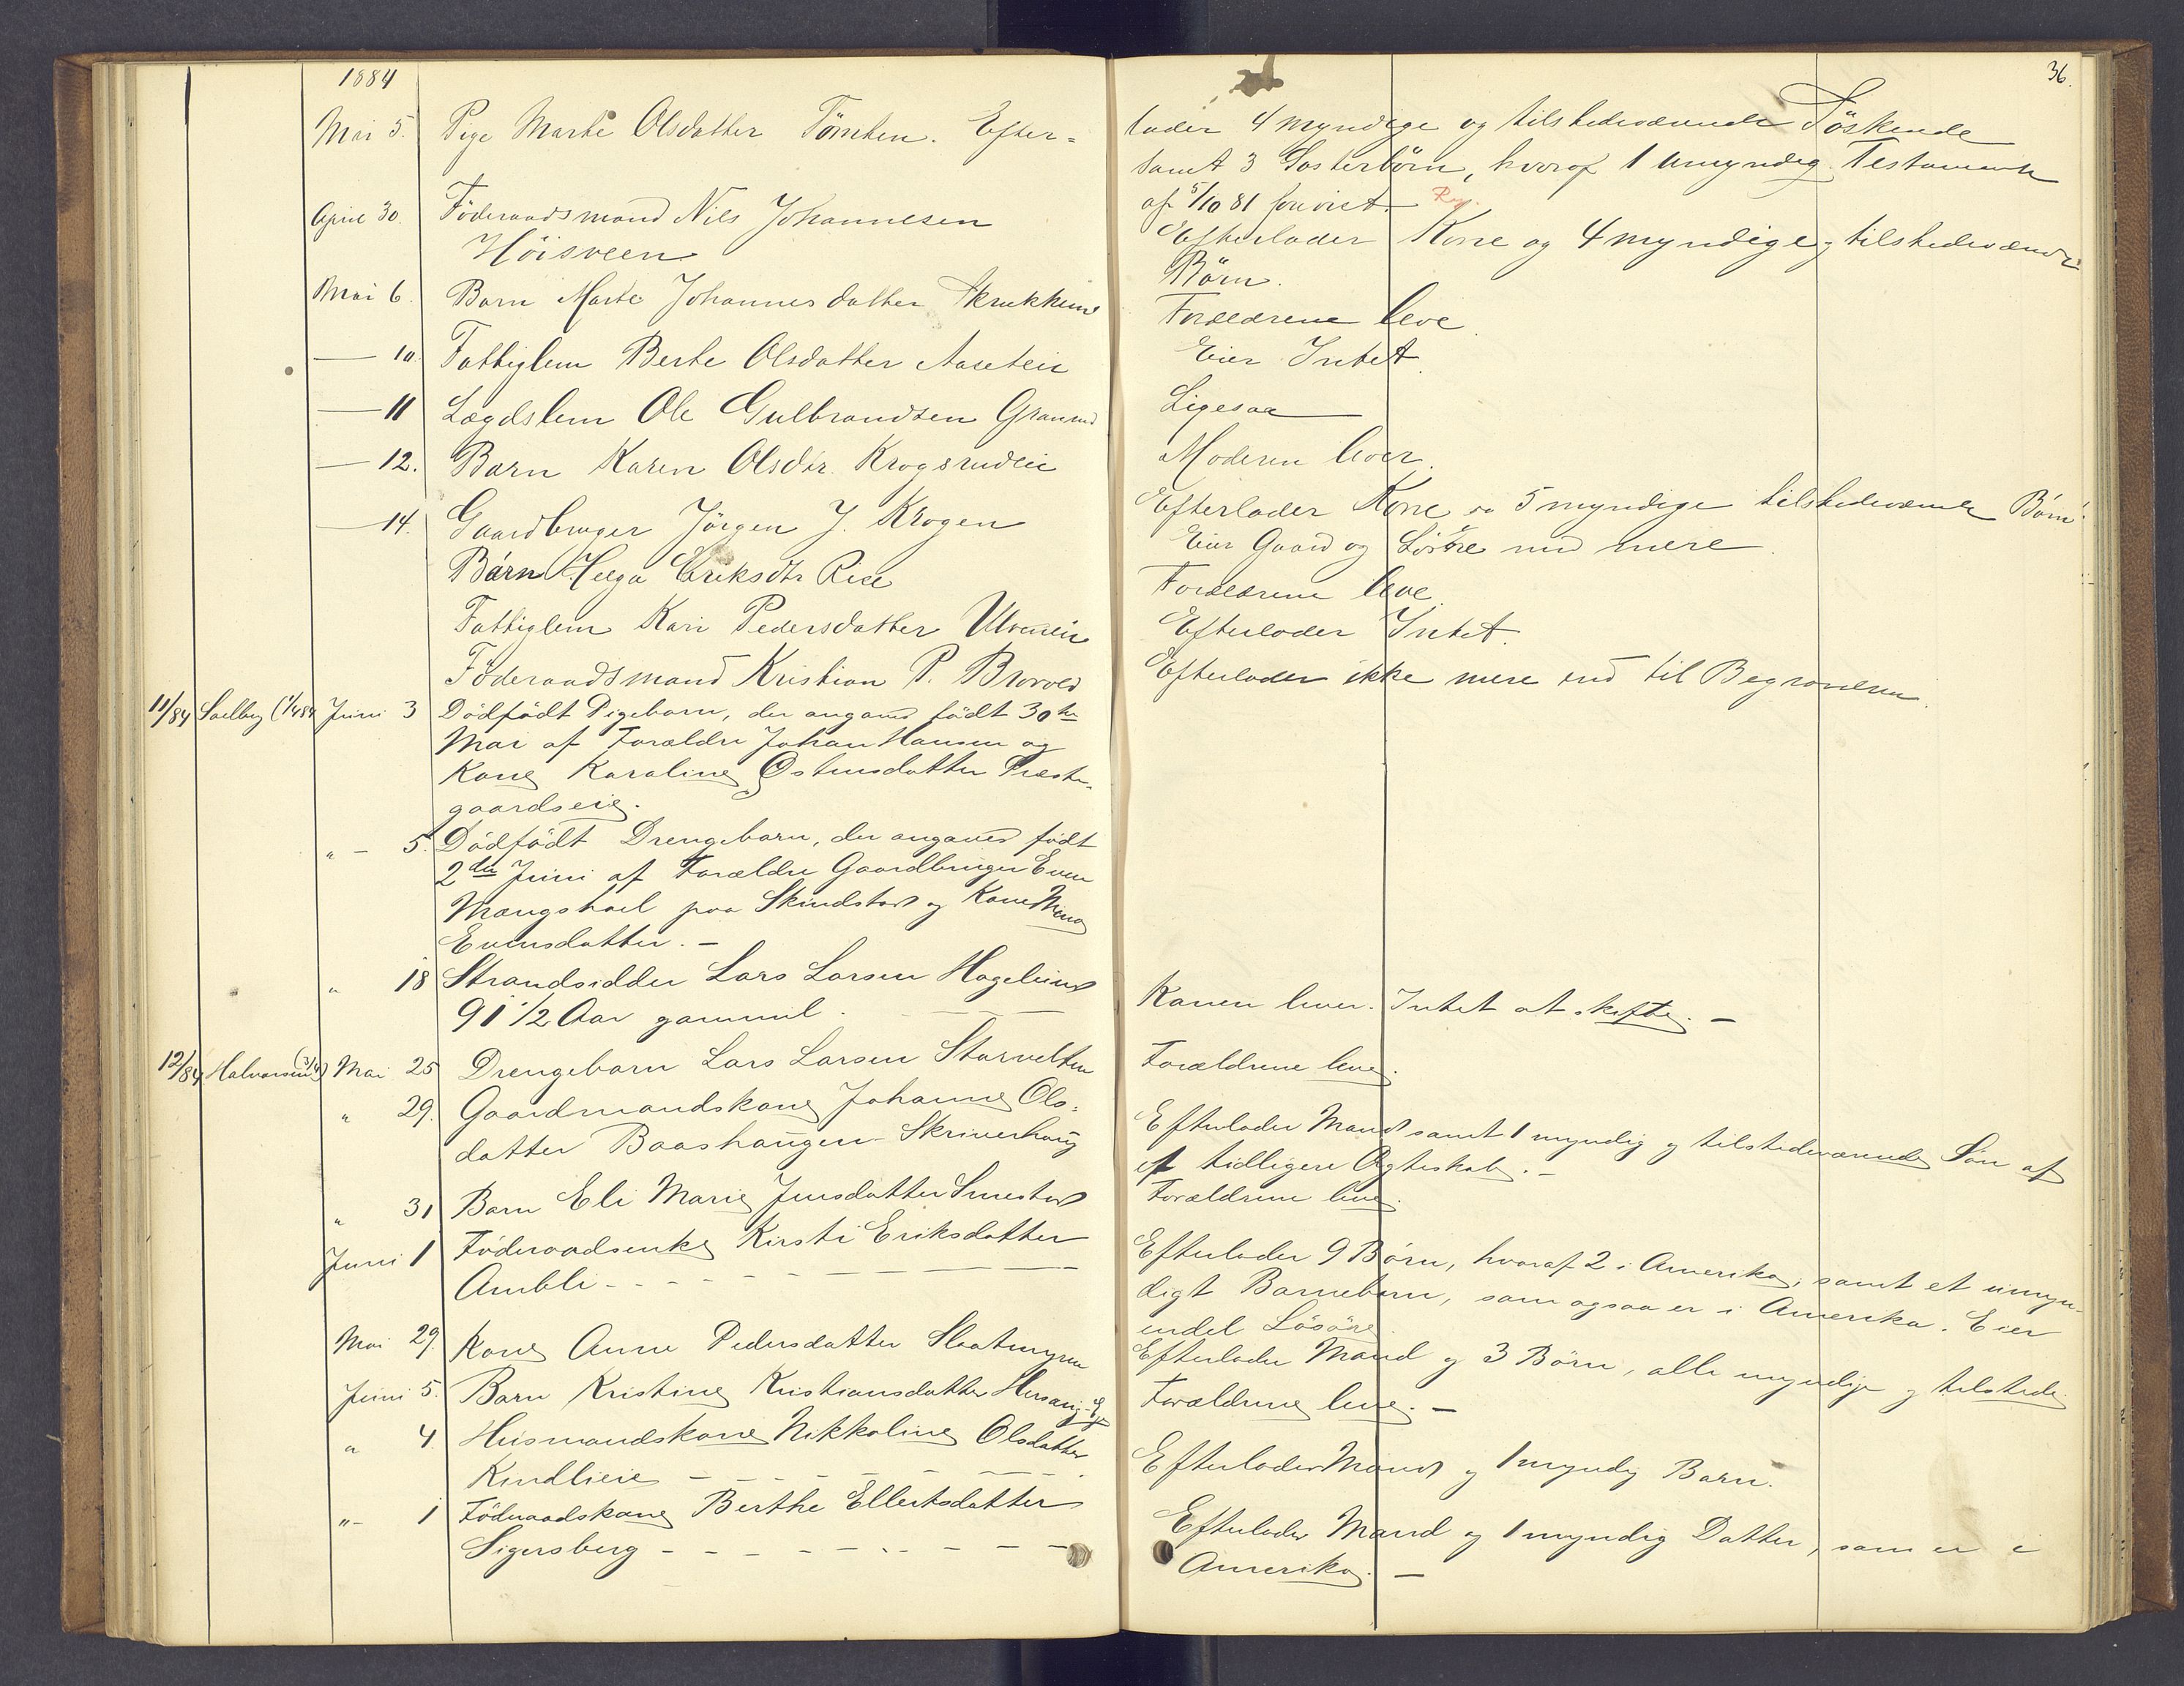 36.
1884
Mai 5. Pige Marte Olsdatter Tömten. Efter=
lader 4 myndige og tilstedeværende Söskende
samt 3 Sösterbörn, hvoraf 1 umyndig. Testament
af 5/10 81 forevist.
April 30. Föderaadsmand Nils Johannesen
Höisveen
Efterlader Kone og 4 myndige, tilstedeværende
Börn.
Mai 6. Barn Marte Johannesdatter
Forældrene leve.
— 10. Fattiglem Berte Olsdatter
Eier Intet.
— 11 Lægdslem Ole Gulbrandsen
Ligesaa
— 12. Barn Karen Olsdtr. Krogsrudeie
Moderen lever.
— 14. Gaardbruger Jörgen J. Krogen
Efterlader Kone og 5 myndige tilstedeværende Börn.
Eier Gaard og Lösöre med mere.
Barn Helga Eriksdtr
Forældrene leve.
Fattiglem Kari Pedersdatter
Efterlader Intet.
Föderaadsmand Kristian P. Brovold
Efterlader ikke mere end til Begravelsen.
11/84 Juni 3 Dödfödt Pigebarn, der angaves födt 30te
Mai af Forældre Johan Hansen og
Kone Karoline Ostensdatter Præste-
gaardseie.
" - 5. Dödfödt Drengebarn, der angaves födt
2den Juni af Forældre Gaardbruger Even
Mangshoel paa Skindstad og Kone
Evensdatter. -
" 18 Strandsidder Lars Larsen
91 1/2 Aar gammel.
Konen lever. Intet at skifte. -
12/84 Halvorsen Mai 25 Drengebarn Lars Larsen
Forældrene leve.
" 29. Gaardmandskone Johanne Ols-
datter Baashaugen - Skriverhaug
Efterlader Mand samt 1 myndig og tilstedeværende Sön af
et tidligere Ægteskab. -
" 31 Barn Eli Marie Jensdatter Smestad
Forældrene leve.
Juni 1 Föderaadsenke Kirsti Eriksdatter
Ambli
Efterlader 9 Börn, hvoraf 2 i Amerika, samt et umyn-
digt Barnebarn, som ogsaa er i Amerika. Eier
endel Lösöre.
Mai 29. Kone Anne Pedersdatter Slaatmyren
Efterlader Mand og 3 Börn, alle myndige og tilstede.
Juni 5. Barn Kristine Kristiansdatter
Forældrene leve. -
" 4 Husmandskone Nikkoline Olsdatter
Kindlieie
Efterlader Mand og 1 myndig Barn.
" - 1 Föderaadskone Berthe Ellertsdatter
Sigersberg
Efterlader Mand og 1 myndig Datter, som er i
Amerika. -